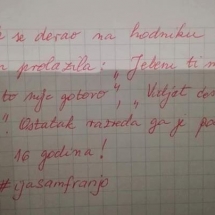 se derao na hodniku
prolazila: "Jebem ti m
to nije gotovo", "Vidjet će
". Ostatak razreda ga je po
16 godina!
#ijasamfranjo